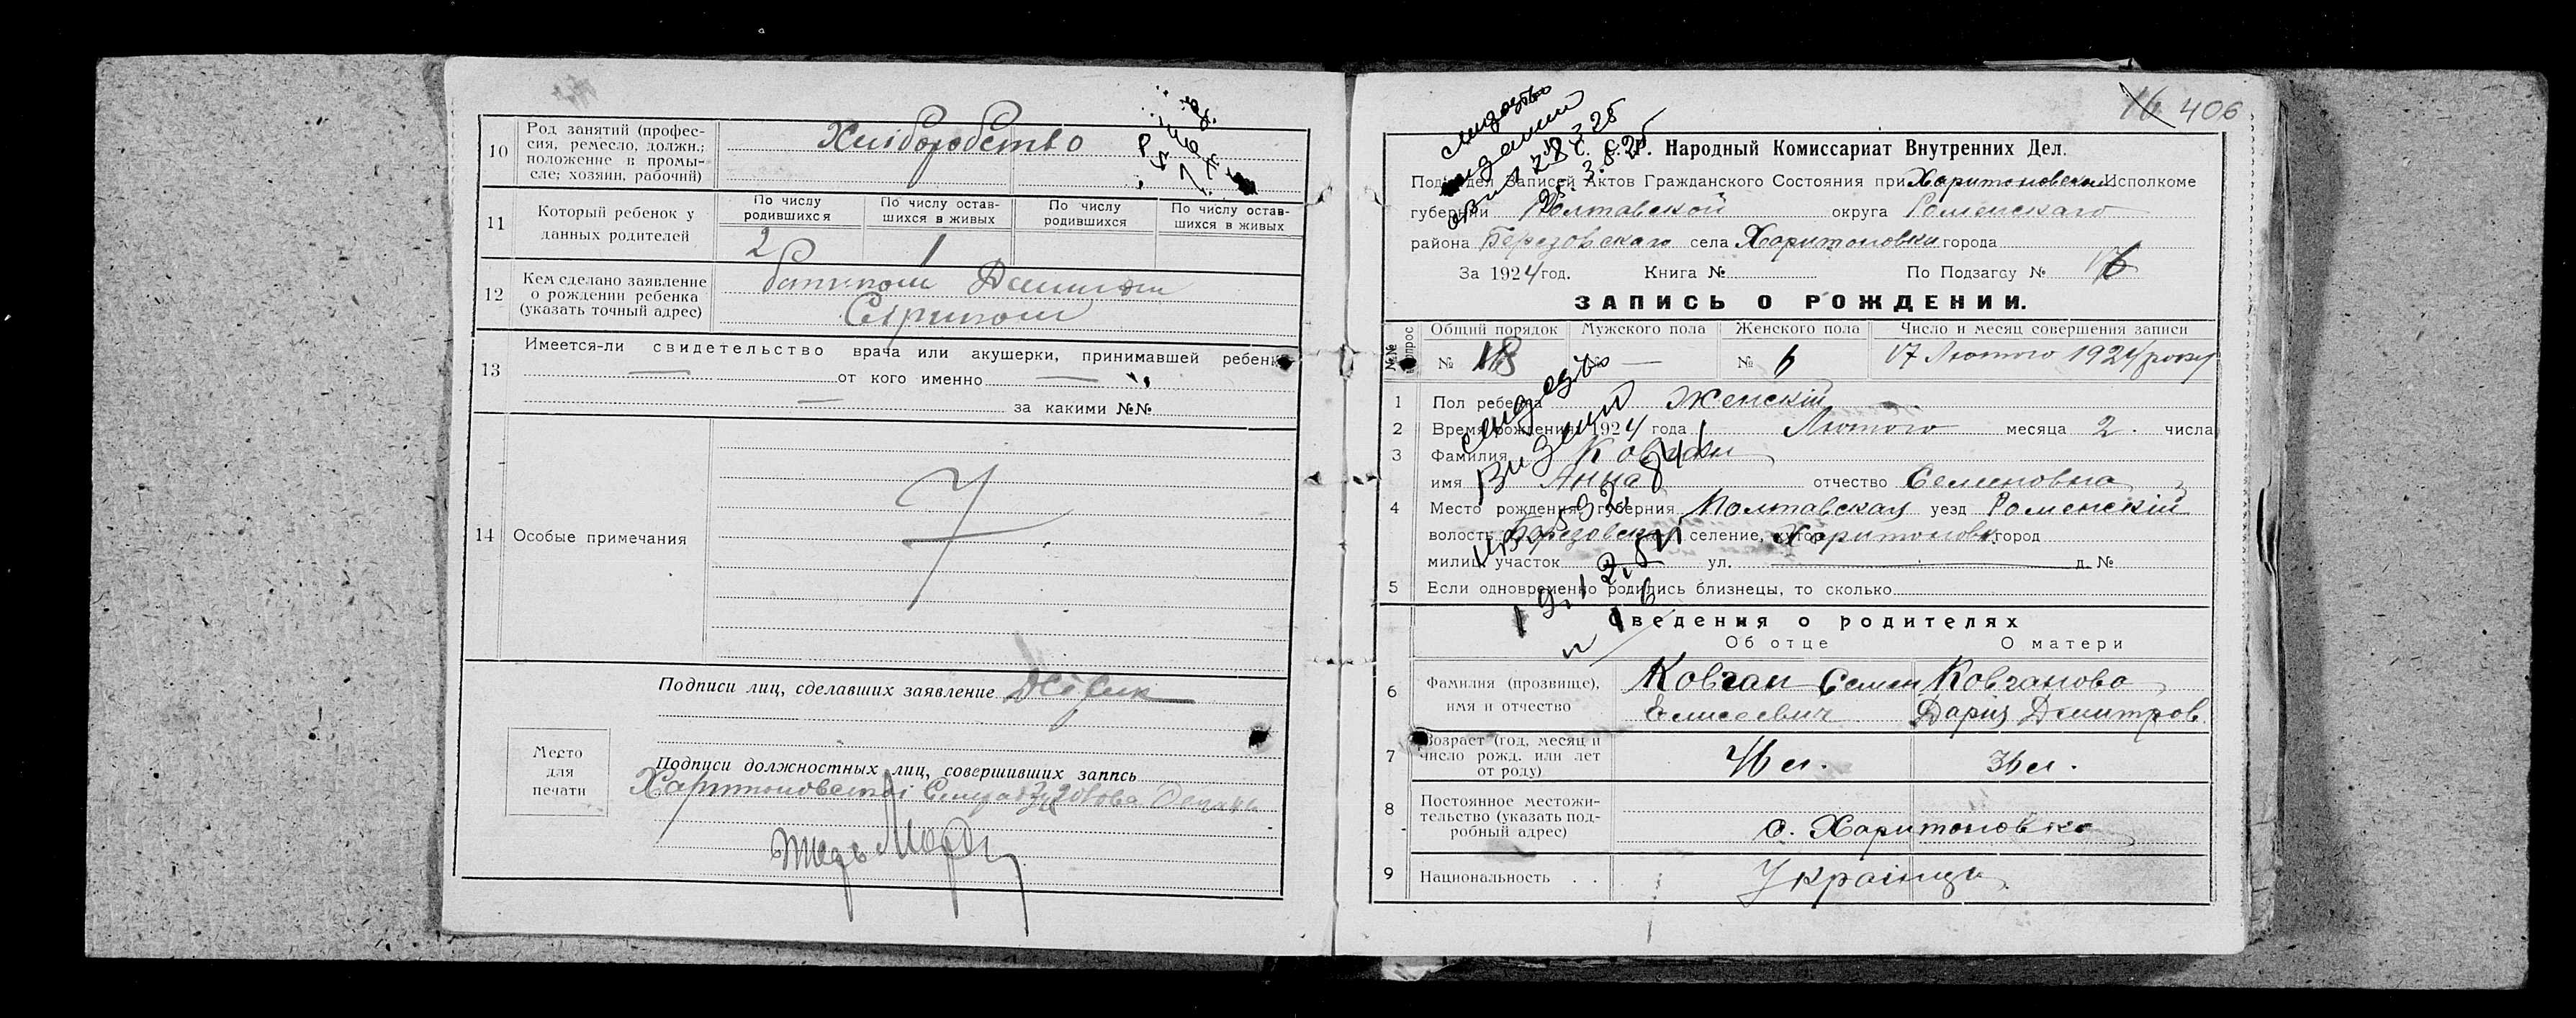 10
Род занятий (профес-
сия, ремесло, должн.;
положение в промы-
сле; хозяин, рабочий)
Хліборобство
11
Который ребенок у
данных родителей
По числу
родившихся
По числу остав-
шихся в живых
По числу
родившихся
По числу остав-
шихся в живых
2
1
12
Кем сделано заявление
о рождении ребенка
(указать точный адрес)
батьком
13
Имеется-ли свидетельство врача или акушерки, принимавшей ребенка
от кого именно
за какими №№
14
Особые примечания
Подписи лиц, сделавших заявление
Место
для
печати
Подписи должностных лиц, совершивших запись
16 406
У. С. С. Р. Народный Комиссариат Внутренних Дел.
Подотдел Записей Актов Гражданского Состояния при Харитоновском Исполкоме
губернии Полтавской округа Роменскаго
района Березовскаго села Харитоновки города
За 1924 год. Книга № По Подзагсу № 16
ЗАПИСЬ О РОЖДЕНИИ.
№№ вопрос
Общий порядок
Мужского пола
Женского пола
Число и месяц совершения записи
№ 18
№ —
№ 6
17 Лютого 1924 року
1 Пол ребенка Женскій
2 Время рождения 1924 года Лютого месяца 2. числа
3 Фамилия Ковган
имя Анна отчество Семеновна
4 Место рождения: губерния Полтавская уезд Роменскій
волость Березовская селение, хутор Харитоновка город
милиц. участок ул. д. №
5 Если одновременно родились близнецы, то сколько
Сведения о родителях
Об отце
О матери
6
Фамилия (прозвище),
имя и отчество
Ковган Семен
Елисеевич
Ковганова
Дария Дмитров.
7
Возраст (год, месяц и
число рожд. или лет
от роду)
46 л.
36 л.
8
Постоянное местожи-
тельство (указать под-
робный адрес)
с. Харитоновка
9
Национальность . .
Українці